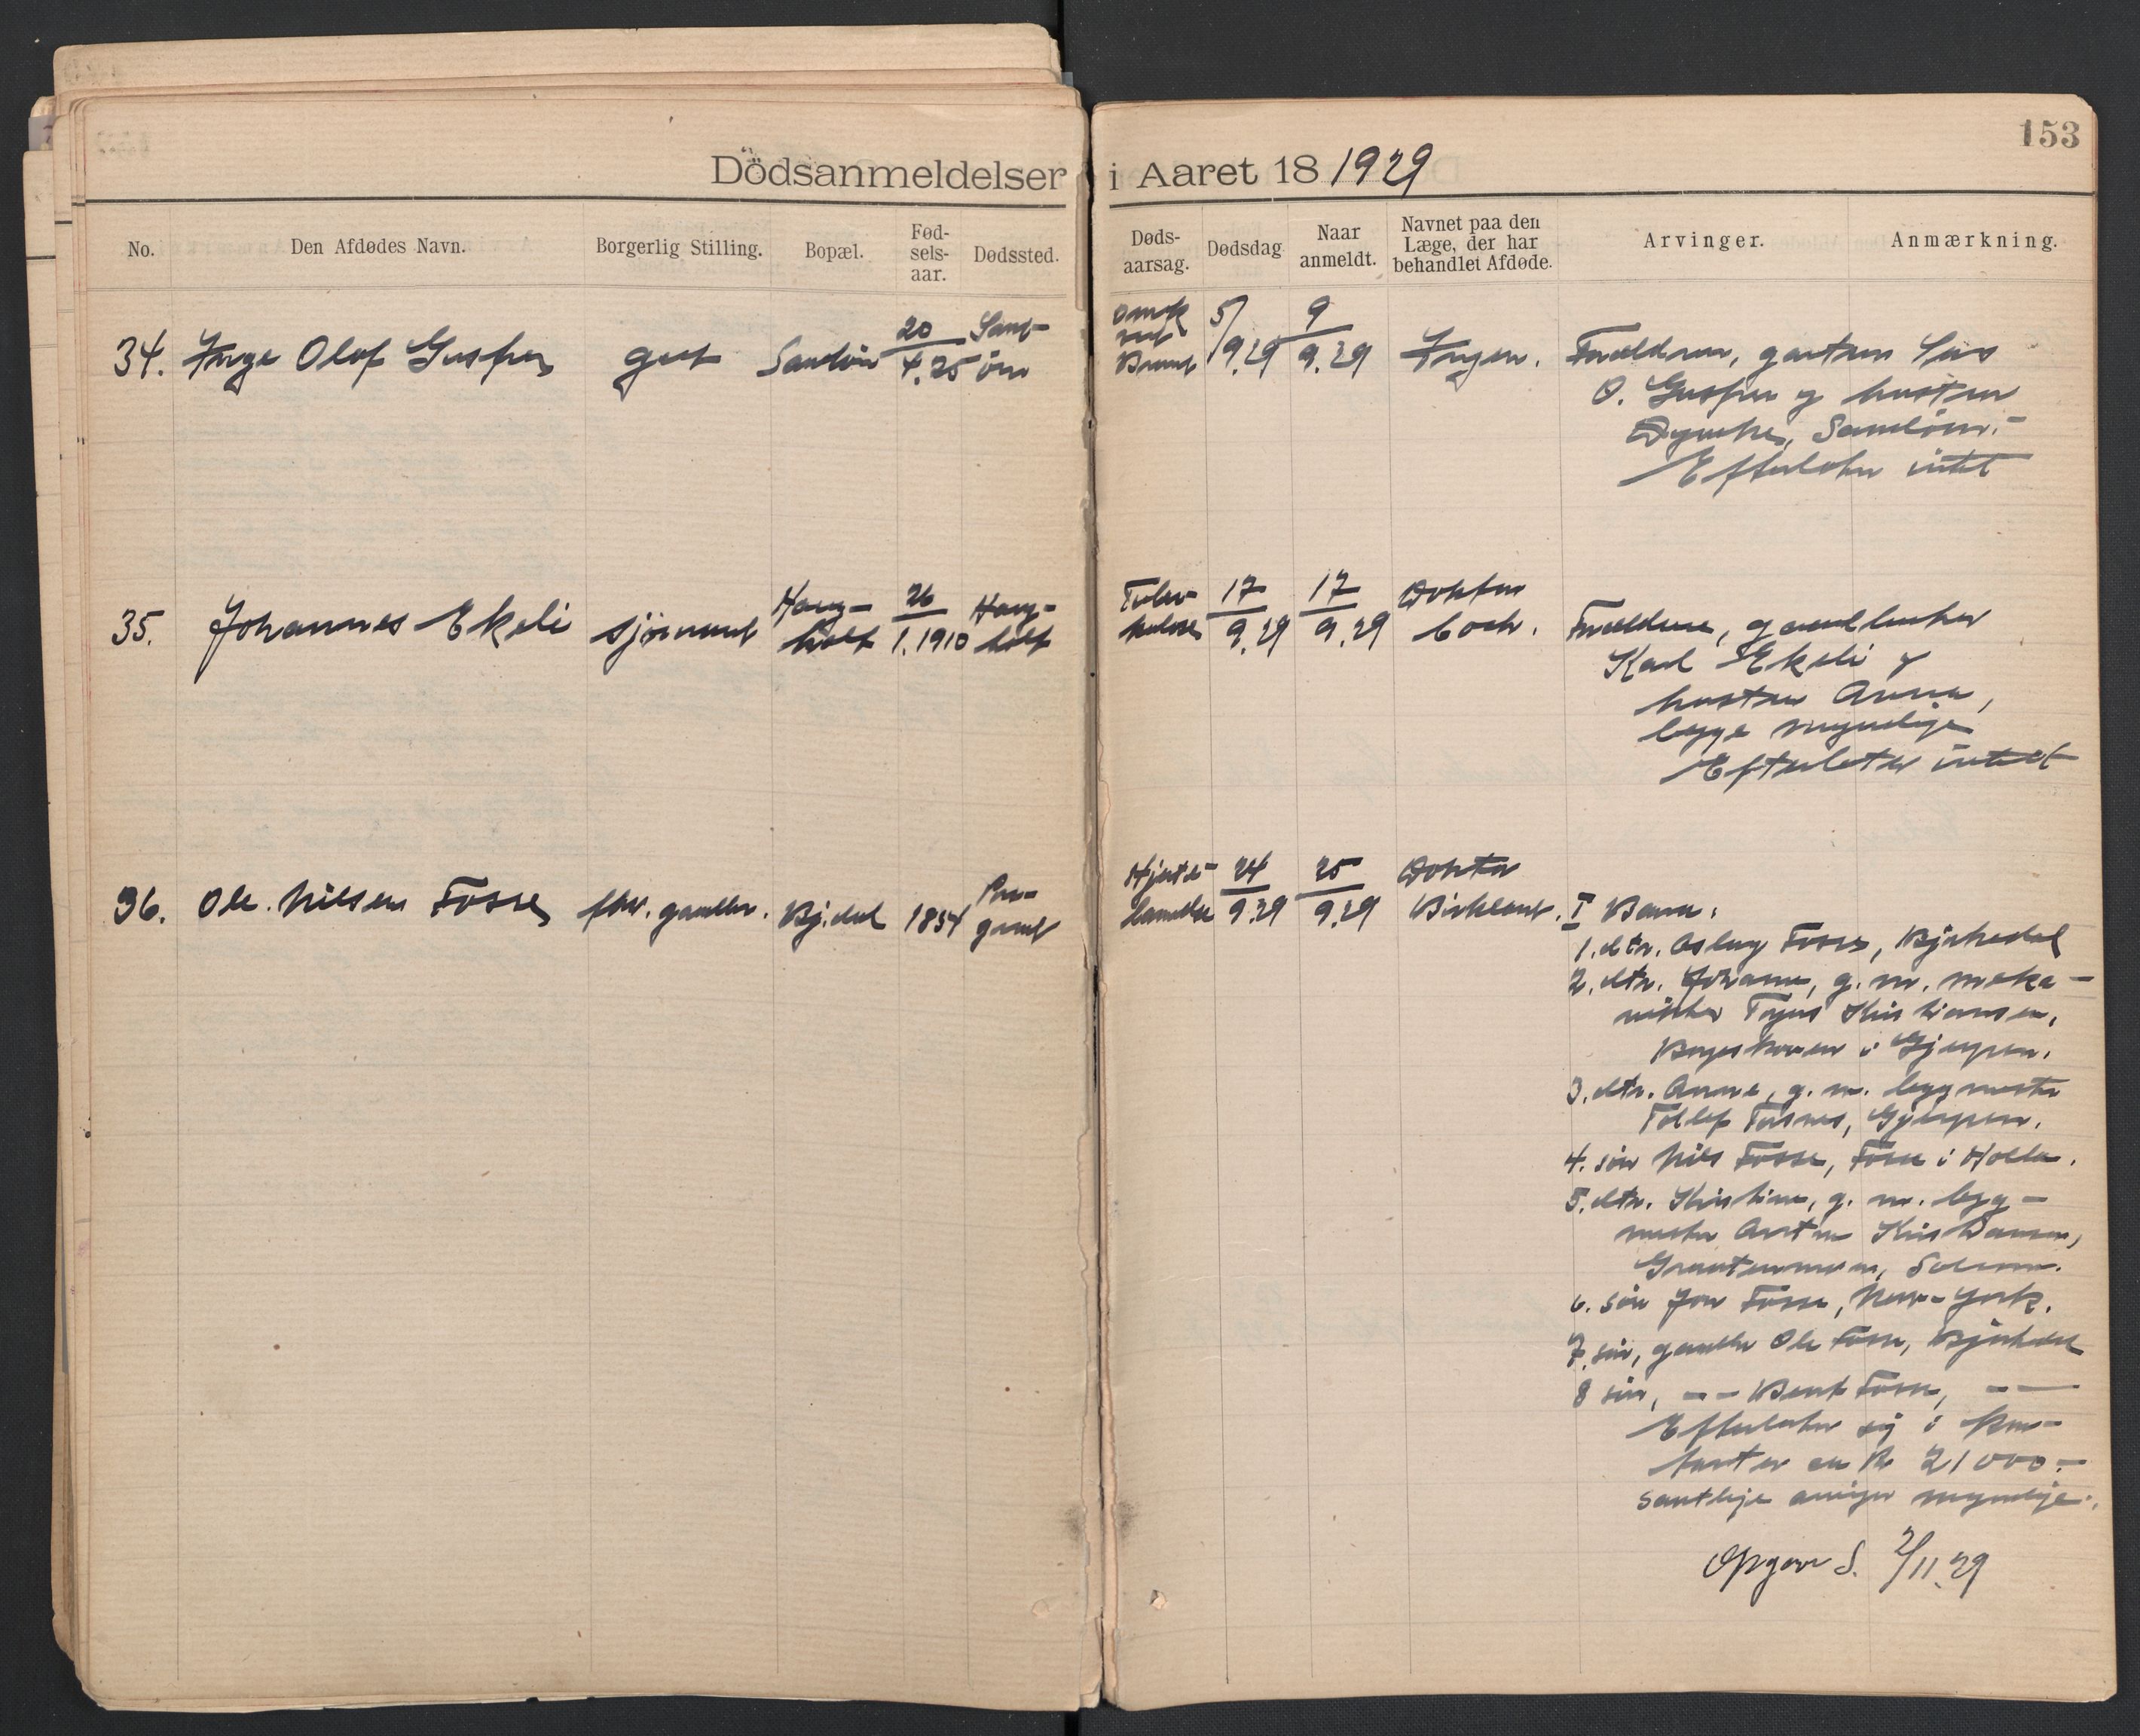 153
Dödsanmeldelser i Aaret 18 1929
No. Den Afdødes Navn. Borgerlig Stilling. Bopæl. Fød-
sels-
aar. Dødssted. Døds-
aarsag. Dødsdag Naar
anmeldt. Navnet paa den
Læge, der har
behandlet Afdøde. Arvinger. Anmærkning.
34. Inge Olof gut 20
4.25 5/9.29 9
9.29 Ingen. Forældrene,
O. og hustru
Efterlater intet
35. Johannes Ekeli sjømand Haug-
holt 26
1.1910 Haug-
holt Tuber-
kulose 17
9.29 17
9.29 Doktor
Coch. Forældrene, gaardbruker
Karl Ekeli og
hustru Anna,
begge myndige
Efterlater intet
36. Ole Nilsen Fosse fhv. gaardbr. Bj.dal 1834 Pors-
grund Hjerte-
lammelse 24
9.29 25
9.29 Doktor
Birkeland. I Barn:
1. dtr. Aslaug Fosse, Bjørkedal
2. dtr. Johanne, g. m. meka-
niker Kristiansen,
i Gjerpen.
3. dtr. Anne, g. m. byggmester
Gjerpen.
4. søn Nils Fosse, Fosse i Holla.
5. dtr. Kristine, g. m. bygg-
mester Anton Kristiansen,
Solum.
6. søn Jon Fosse, New-York.
7. søn, gaardbr. Ole Fosse, Bjørkedal
8 søn, – – Bent Fosse, – –
Efterlater sig i kon-
tanter ca kr 21000.-
Samtlige arvinger myndige.
Opgave S. 2/11.29